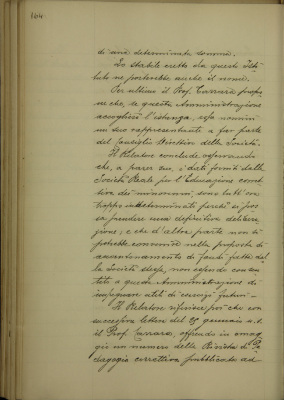 164
di una determinata somma.
Lo stabile eretto da questo Isti-
tuto ne porterebbe anche il nome.
Per ultimo il Prof. Carrara propo-
ne che, se questa Amministrazione
accoglierà l'istanza, essa nomini
un suo rappresentante a far parte
del Consiglio Direttivo della Società.
Il Relatore conclude osservando
che, a parer suo, i dati forniti dalla
Società Reale per l'Educazione corret-
tiva dei minorenni, sono tutt'ora
troppo indeterminati perchè si pos-
sa prendere una definitiva delibera-
zione; e che d'altra parte non si
potrebbe consentire nella proposta di
accantonamento di fondi fatta dal-
la Società stessa, non essendo consen-
tito a questa Amministrazione di
impegnare utili di esercizi futuri.
Il Relatore riferisce poi che con
successiva lettera del 29 gennaio u.s.
il Prof. Carrara, offrendo in omag-
gio un numero della Rivista di Pe-
dagogia correttiva pubblicata ad